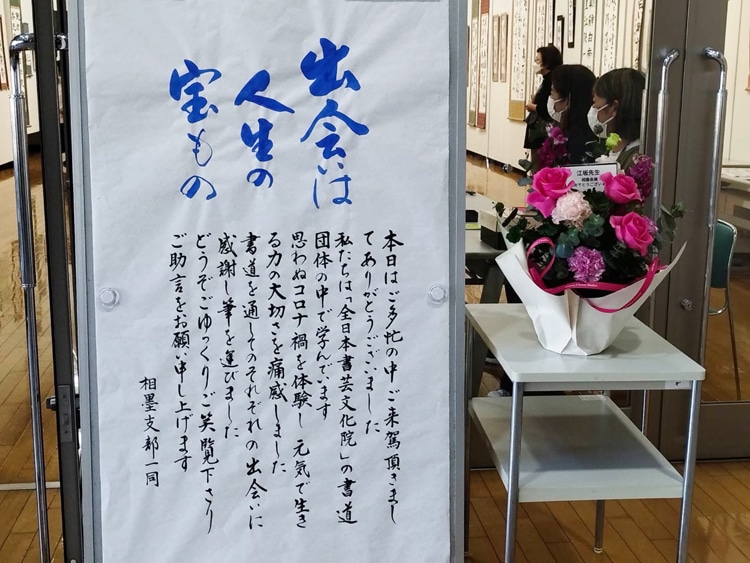 出会いは
人生の
宝もの
本日はご多忙の中ご来駕頂きまし
てありがとうございました
私たちは「全日本書芸文化院」の書道
団体の中で学んでいます
思わぬコロナ禍を体験し 元気で生き
る力の大切さを痛感しました
書道を通してのそれぞれの出会いに
感謝し筆を運びました
どうぞごゆっくりご笑覧下さり
ご助言をお願い申し上げます
相墨支部一同
江坂先生